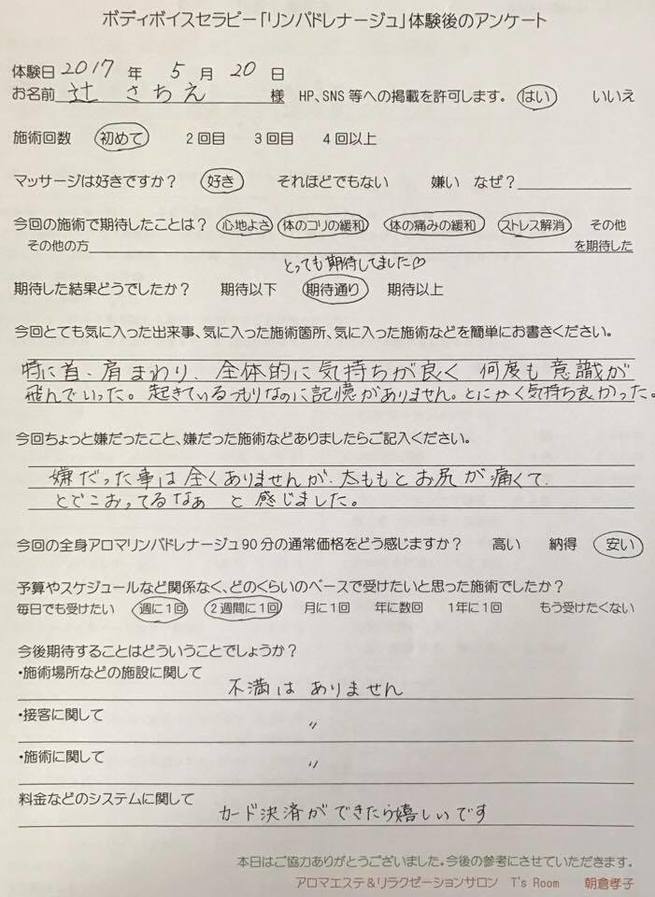 ボディボイスセラピー「リンパドレナージュ」体験後のアンケート
体験日 2017 年 5 月 20 日
お名前 辻 さちえ 様 HP、SNS 等への掲載を許可します。 はい いいえ
施術回数 初めて 2回目 3回目 4回以上
マッサージは好きですか? 好き それほどでもない 嫌い なぜ?
今回の施術で期待したことは? 心地よさ 体のコリの緩和 体の痛みの緩和 ストレス解消 その他
その他の方 を期待した
とっても期待してました♡
期待した結果どうでしたか? 期待以下 期待通り 期待以上
今回とても気に入った出来事、気に入った施術箇所、気に入った施術などを簡単にお書きください。
特に首、肩まわり、全体的に気持ちが良く 何度も意識が
飛んでいった。起きているつもりなのに記憶がありません。とにかく気持ち良かった。
今回ちょっと嫌だったこと、嫌だった施術などありましたらご記入ください。
嫌だった事は全くありませんが、太ももとお尻が痛くて、
とどこおってるなぁ と感じました。
今回の全身アロマリンパドレナージュ90分の通常価格をどう感じますか? 高い 納得 安い
予算やスケジュールなど関係なく、どのくらいのペースで受けたいと思った施術でしたか?
毎日でも受けたい 週に1回 2週間に1回 月に1回 年に数回 1年に1回 もう受けたくない
今後期待することはどういうことでしょうか?
・施術場所などの施設に関して
不満は ありません
・接客に関して
〃
・施術に関して
〃
料金などのシステムに関して
カード決済ができたら嬉しいです
本日はご協力ありがとうございました。今後の参考にさせていただきます。
アロマエステ&リラクゼーションサロン T's Room 朝倉孝子